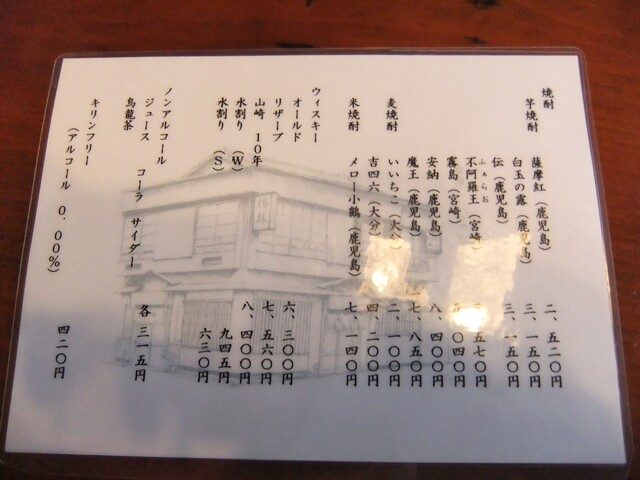 焼酎
芋焼酎 薩摩紅（鹿児島） 二、五二〇円
白玉の露（鹿児島） 三、一五〇円
伝（鹿児島） 三、一五〇円
ふぁらお
不阿羅王（宮崎） 五七〇円
霧島（宮崎） 〇四〇円
安納（鹿児島） 八、四〇〇円
魔王（鹿児島） 七、八五〇円
麦焼酎 いいちこ（大分） 二、一〇〇円
吉四六（大分） 四、二〇〇円
米焼酎 メロー小鶴（鹿児島） 七、一四〇円
ウィスキー
オールド 六、三〇〇円
リザーブ 七、五六〇円
山崎 10年 八、四〇〇円
水割り（W） 九四五円
水割り（S） 六三〇円
ノンアルコール
ジュース コーラ サイダー
烏龍茶 各 三一五円
キリンフリー
（アルコール 0.00%） 四二〇円